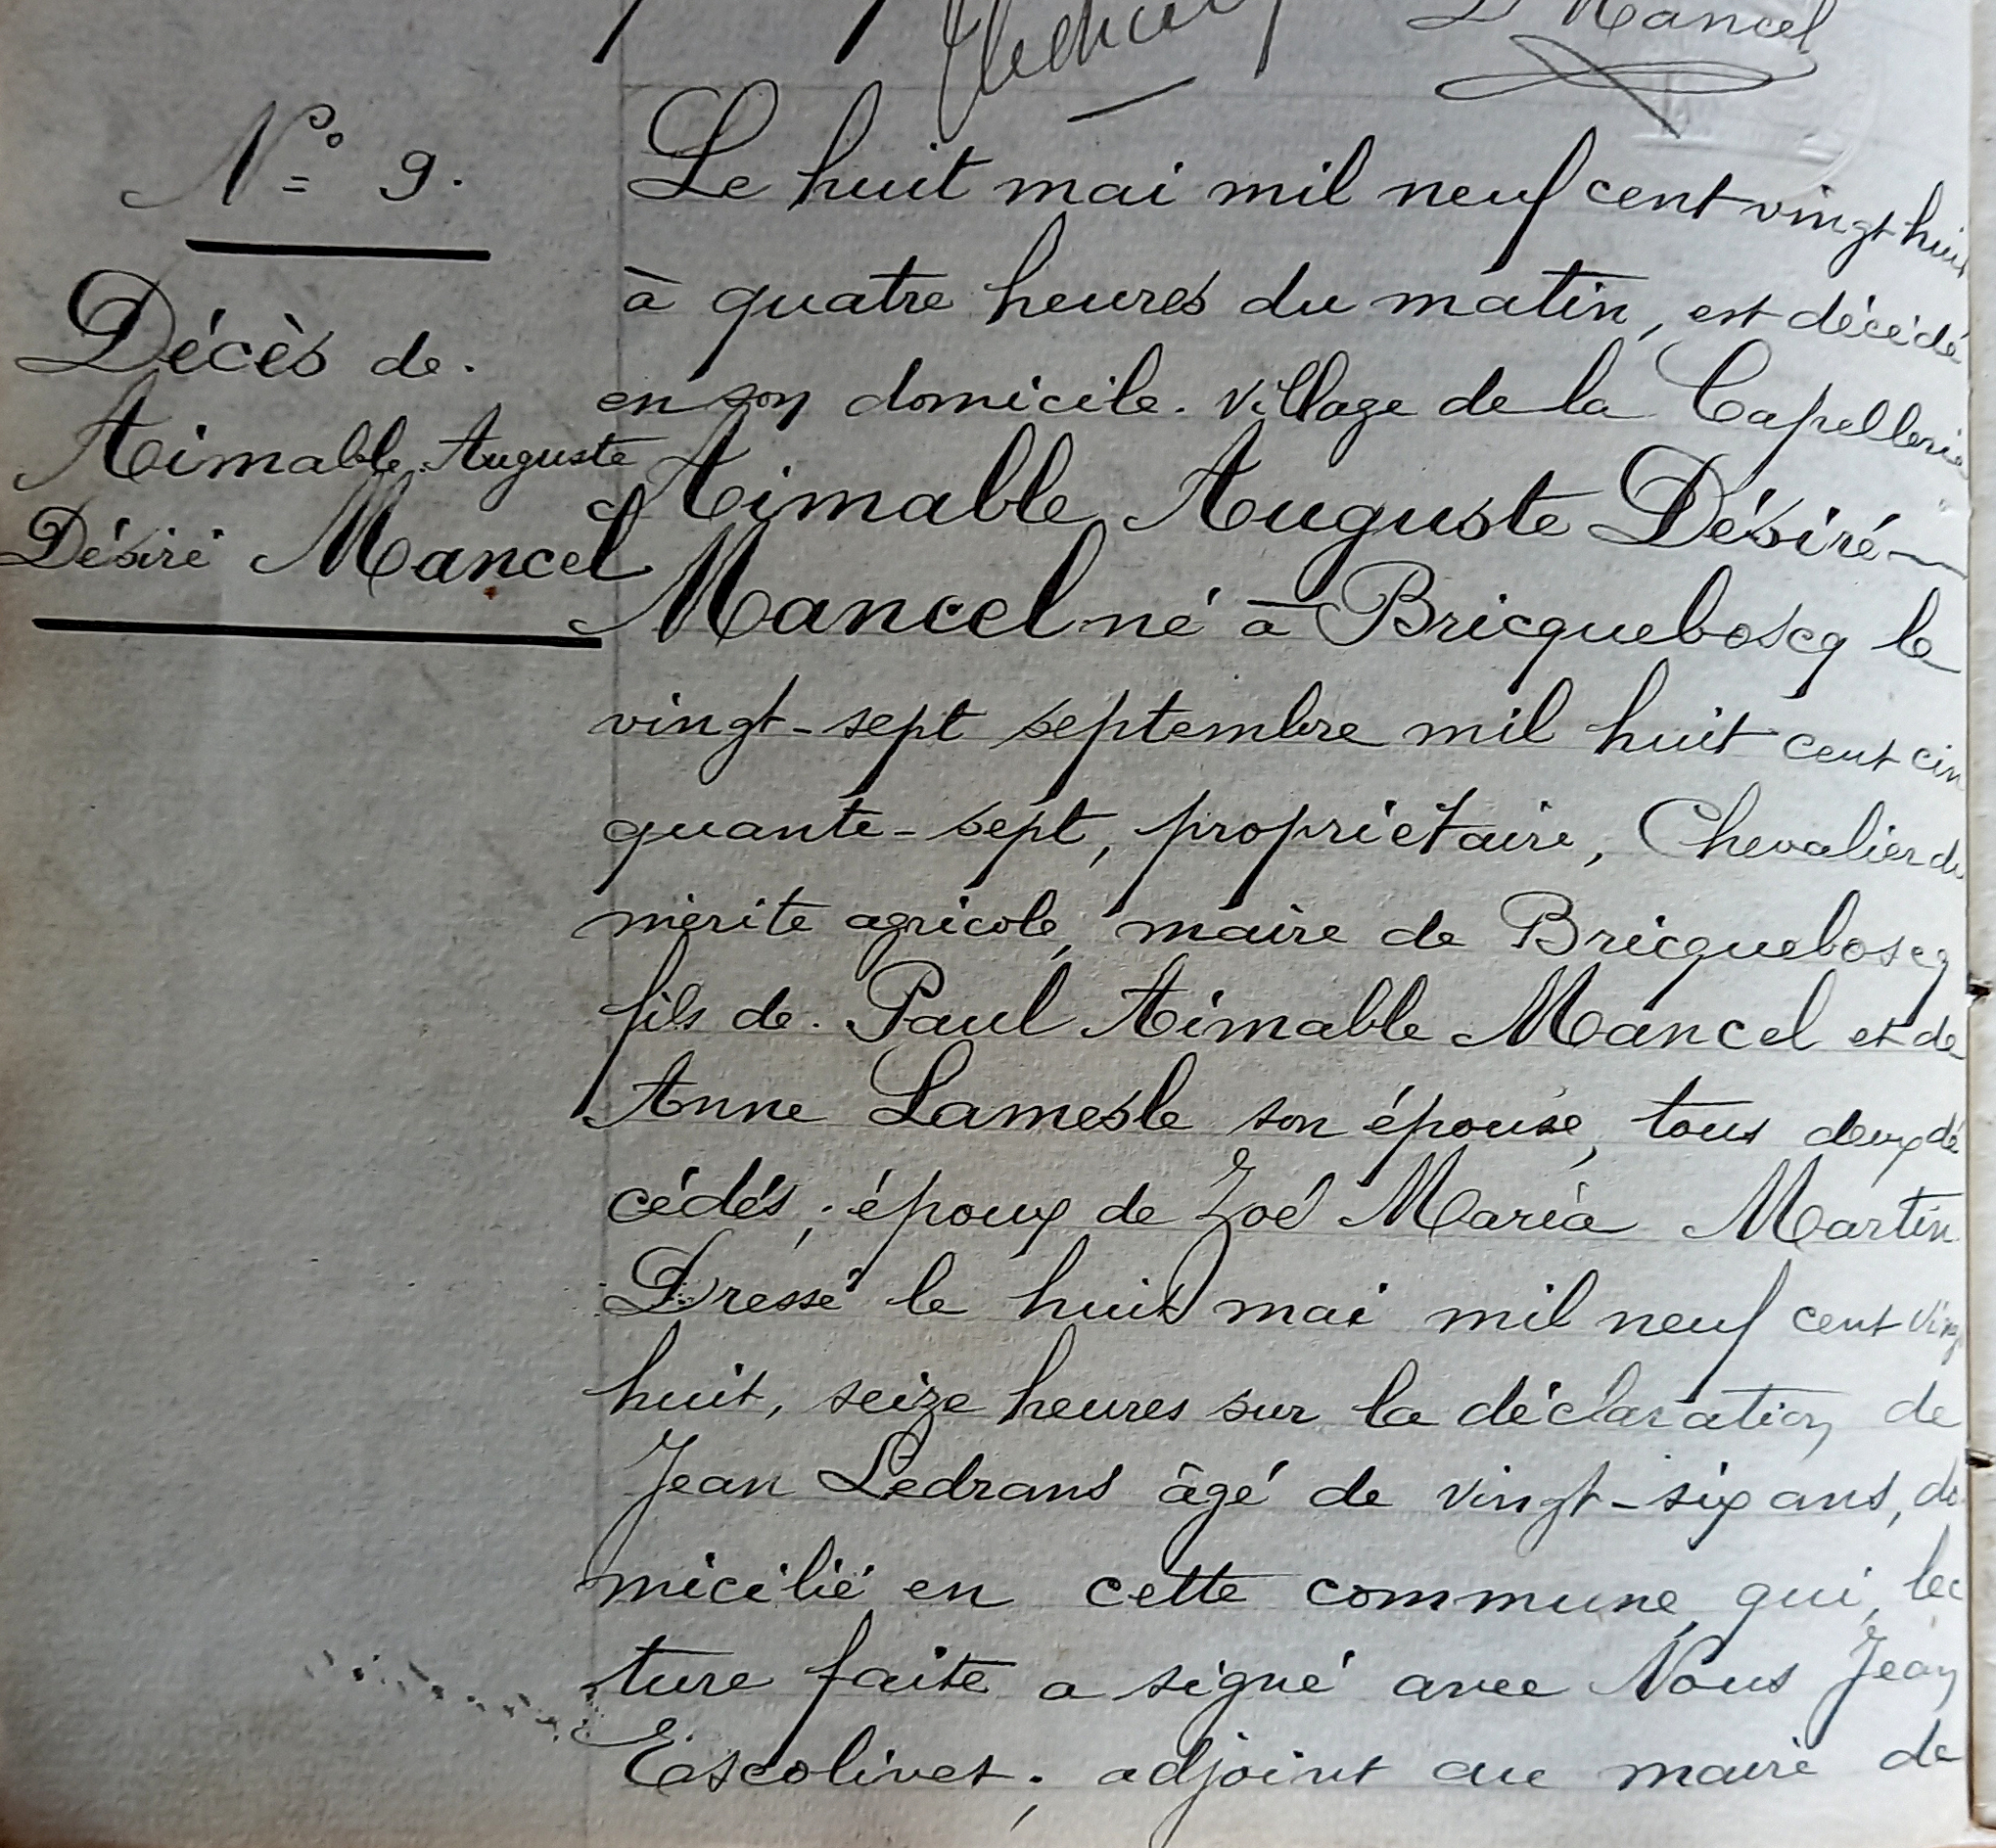 Mancel
N° 9.
Décès de.
Aimable Auguste
Désiré Mancel
Le huit mai mil neuf cent vingt huit
à quatre heures du matin, est décédé
en son domicile. village de la Capellerie
Aimable Auguste Désiré
Mancel né à Bricqueboscq le
vingt-sept septembre mil huit cent cin
quante-sept, propriétaire, Chevalier du
mérite agricole, maire de Bricqueboscq
fils de. Paul Aimable Mancel et de
Anne Lamesle son épouse, tous deux dé
cédés, époux de Zoé Maria Martin
Dressé le huit mai mil neuf cent ving
huit, seize heures sur la déclaration de
Jean Ledrans âgé de vingt-six ans, do
micilié en cette commune, qui, lec
ture faite a signé avec Nous Jean
Escolivet, adjoint au maire de